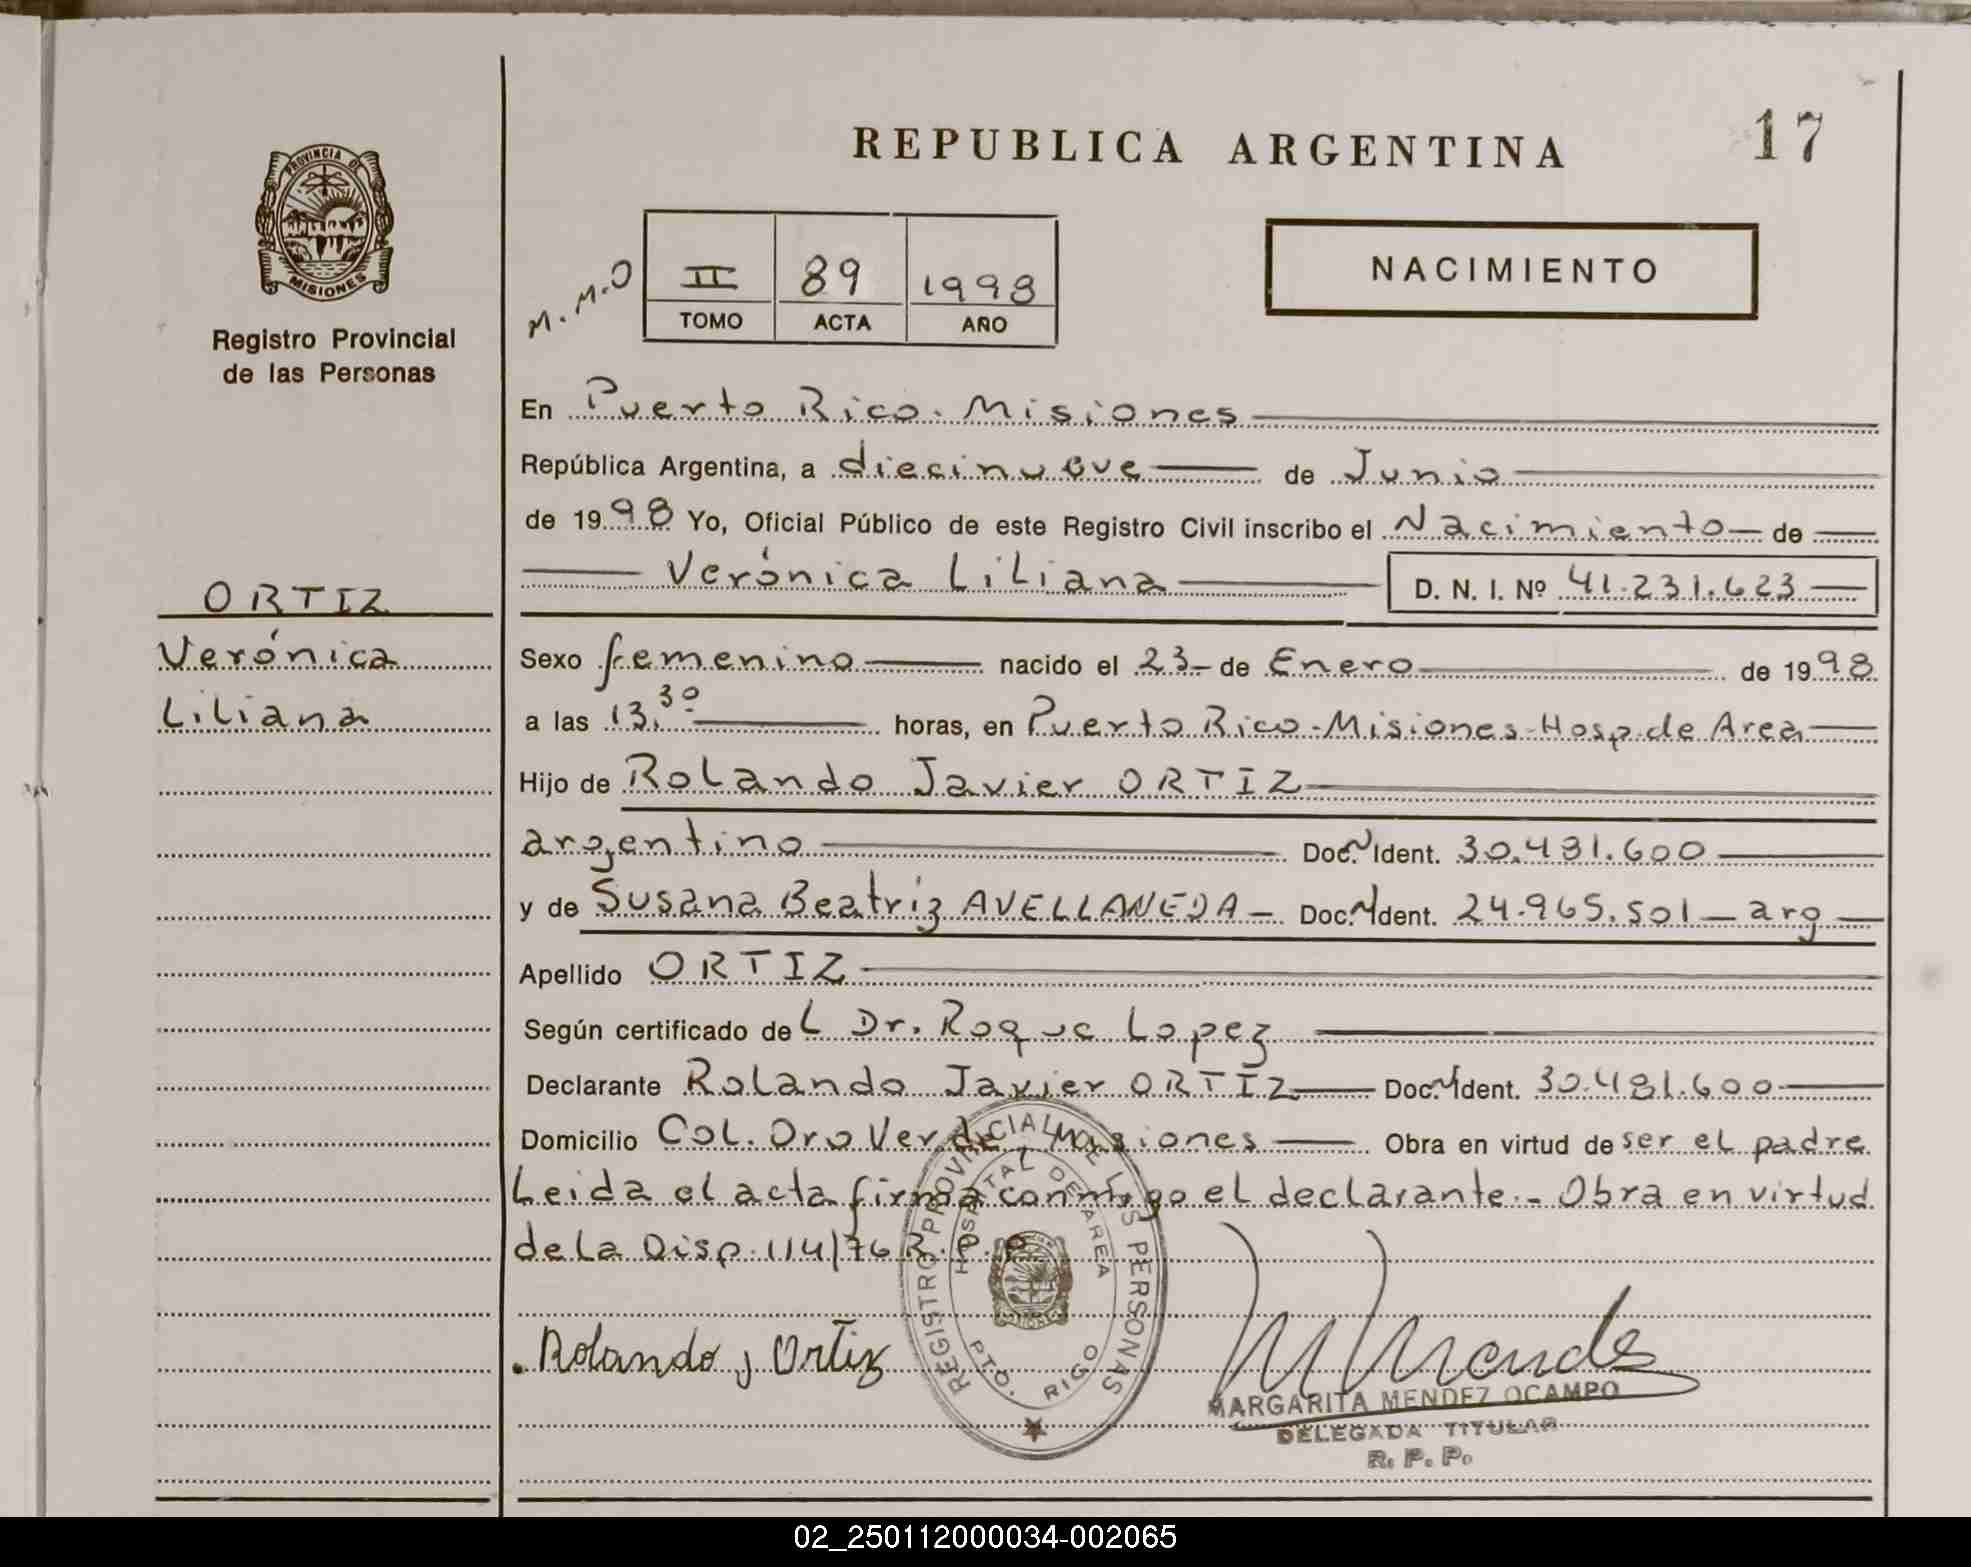 REPUBLICA ARGENTINA
17
PROVINCIA DE
MISIONES
Registro Provincial
de las Personas
M.M.O
II 89 1998
TOMO ACTA AÑO
NACIMIENTO
En Puerto Rico. Misiones
República Argentina, a diecinueve de Junio
de 1998 Yo, Oficial Público de este Registro Civil inscribo el Nacimiento de
Verónica Liliana D. N. I. Nº 41.231.623
ORTIZ
Verónica
Liliana
Sexo femenino nacido el 23 de Enero de 1998
a las 13,30 horas, en Puerto Rico-Misiones-Hosp.de Area
Hijo de Rolando Javier ORTIZ
argentino Doc. N Ident. 30.481.600
y de Susana Beatriz AVELLANEDA Doc. N Ident. 24.965.501 - arg
Apellido ORTIZ
Según certificado del Dr. Roque Lopez
Declarante Rolando Javier ORTIZ Doc. N Ident. 30.481.600
Domicilio Col. Oro Verde, Misiones Obra en virtud de ser el padre
Leida el acta firma conmigo el declarante.- Obra en virtud
de la Disp. 114/76 R.P.P
REGISTRO PROVINCIAL DE LAS PERSONAS
HOSPITAL DE AREA
PTO. RIGO
Rolando J Ortiz
M Mendez
MARGARITA MENDEZ OCAMPO
DELEGADA TITULAR
R. P. P.
02_250112000034-002065